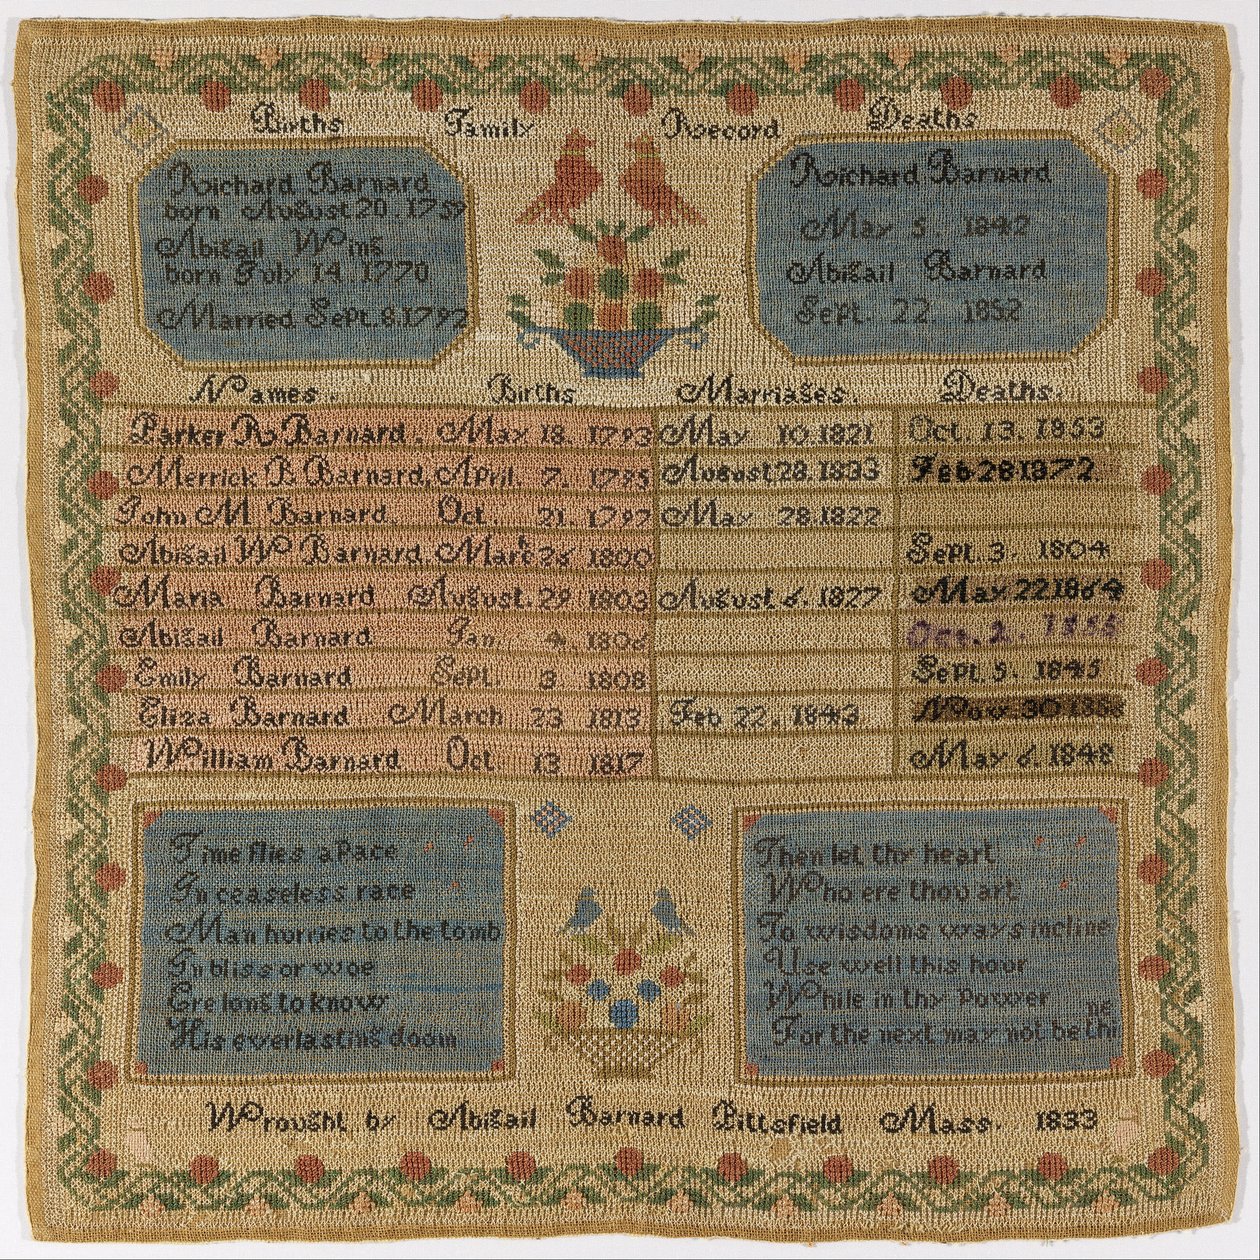 Births Family Record Deaths
Richard Barnard
born August 20. 1759
Abigail Wing
born July 14. 1770
Married Sept. 8. 1792
Richard Barnard
May 5. 1842
Abigail Barnard
Sept. 22 1852
Names. Births Marriages. Deaths.
Parker R Barnard. May 18. 1793 May 10. 1821 Oct. 13. 1853
Merrick B Barnard. April. 7. 1795 August 28. 1833 Feb 28 1872.
John M Barnard. Oct. 21. 1797 May 28. 1822
Abigail W Barnard Marc 26 1800 Sept. 3. 1804
Maria Barnard August. 29. 1803 August 6. 1827 May 22 1864
Abigail Barnard Jan 4 1806 Oct. 2.
Emily Barnard Sept. 3 1808 Sept. 5. 1845
Eliza Barnard March 23 1813 Feb 22. 1843 Nov. 30
William Barnard Oct 13 1817 May 6. 1848
Time flies a Pace
In ceaseless race
Man hurries to the tomb
In bliss or woe
Ere long to know
His everlasting doom
Then let thy heart
Who ere thou art
To wisdoms ways incline
Use well this hour
While in thy Power
For the next may not be thi
ne
Wrought by Abigail Barnard Pittsfield Mass. 1833